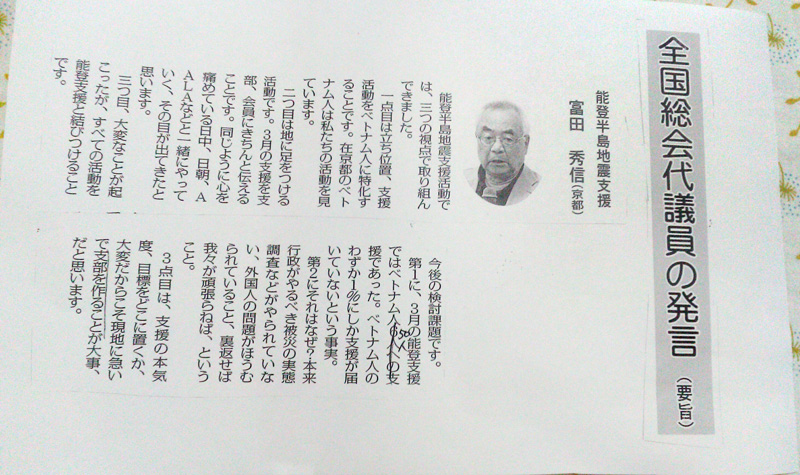 全国総会代議員の発言(要旨)
能登半島地震支援
富田 秀信(京都)
能登半島地震支援活動で
は、三つの視点で取り組ん
できました。
一点目は立ち位置、支援
活動をベトナム人に特化す
ることです。在京都のベト
ナム人は私たちの活動を見
ています。
二つ目は地に足をつける
活動です。3月の支援を支
部、会員にきちんと伝える
ことです。同じように心を
痛めている日中、日朝、A
ALAなどと一緒にやって
いく、その目が出てきたと
思います。
三つ目、大変なことが起
こったが、すべての活動を
能登支援と結びつけること
です。
今後の検討課題です。
第1に、3月の能登支援
ではベトナム人への支
援であった。ベトナム人の
わずか1%にしか支援が届
いていないという事実。
第2にそれはなぜ?本来
行政がやるべき被災の実態
調査などがやられていな
い、外国人の問題がほうむ
られていること、裏返せば
我々が頑張らねば、という
こと。
3点目は、支援の本気
度、目標をどこに置くか、
大変だからこそ現地に急い
で支部を作ることが大事、
だと思います。